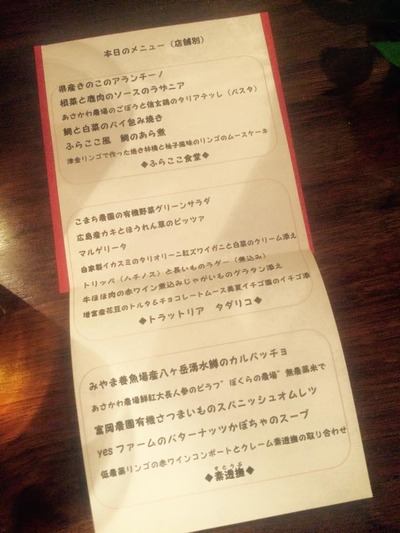 本日のメニュー（店舗別）
県産きのこのアランチーノ
根菜と鹿肉のソースのラザニア
あさかわ農場のごぼうと信玄鶏のタリアテッレ（パスタ）
鯛と白菜のパイ包み焼き
ふらここ風　鯛のあら煮
津金リンゴで作った焼き林檎と柚子風味のリンゴのムースケーキ
◆ふらここ食堂◆
こまち農園の有機野菜グリーンサラダ
広島産カキとほうれん草のピッツァ
マルゲリータ
自家製イカスミのタリオリーニ紅ズワイガニと白菜のクリーム添え
トリッパ（ハチノス）と長いものラグー（煮込み）
牛ほほ肉の赤ワイン煮込みじゃがいものグラタン添え
増富産花豆のトルタ＆チョコレートムース美夏イチゴ園のイチゴ添
◆トラットリア　タダリコ◆
みやま養魚場産八ヶ岳湧水鱒のカルパッチョ
あさかわ農場鮮紅大長人参のピラフ゛ぼくらの農場゛無農薬米で
富岡農園有機さつまいものスパニッシュオムレツ
yesファームのバターナッツかぼちゃのスープ
低農薬リンゴの赤ワインコンポートとクレーム素透撫の取り合わせ
すとうぶ
◆素透撫◆